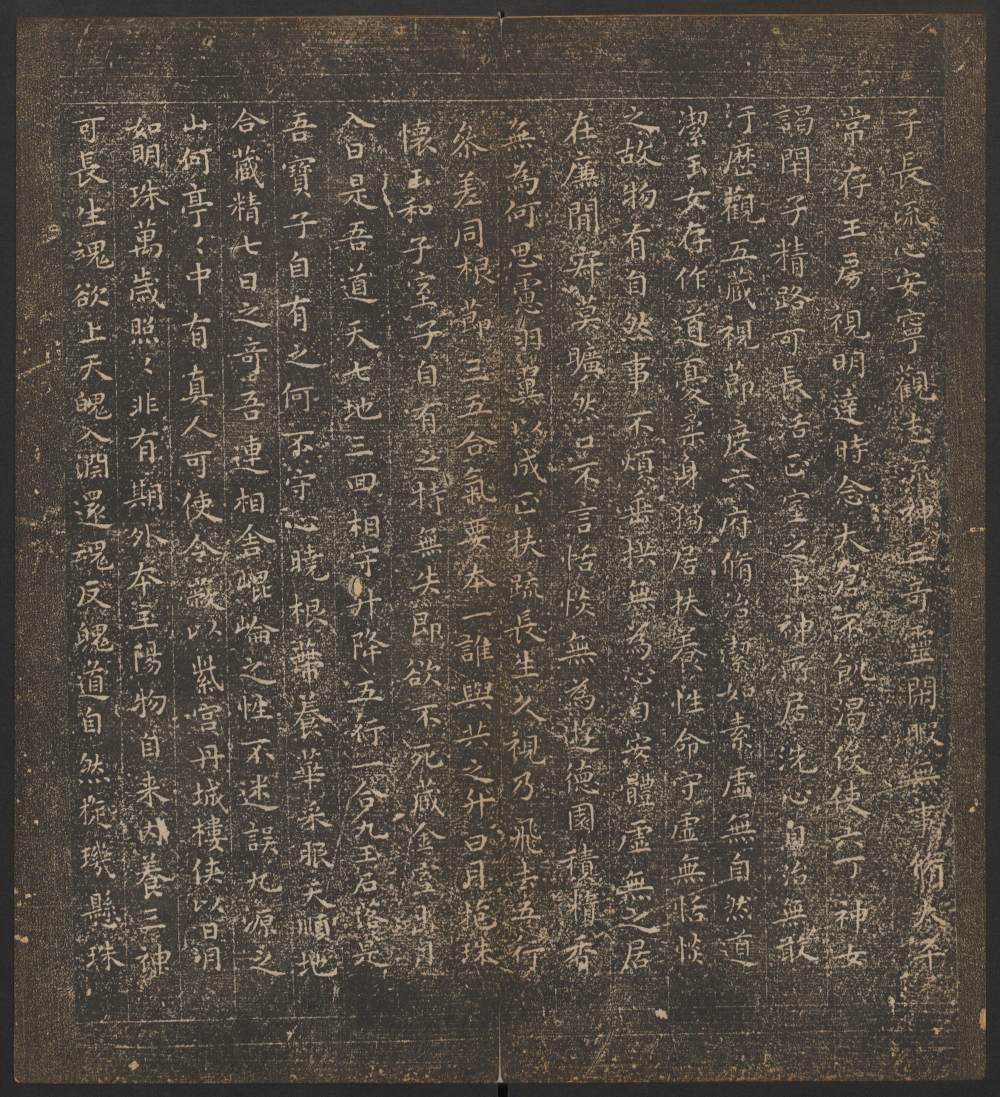 子長流心安寧觀志流神三奇靈閑暇無事脩太平
常存玉房視明達時念太倉不飢渴役使六丁神女
謁閉子精路可長活正室之中神所居洗心自治無敢
汙歷觀五藏視節度六府脩治潔如素虛無自然道
之故物有自然事不煩垂拱無為心自安體虛無之居
在廉閒寂莫曠然口不言恬惔無為遊德園積精香
潔玉女存作道憂柔身獨居扶養性命守虛無恬惔
無為何思慮羽翼以成正扶疏長生久視乃飛去五行
參差同根節三五合氣要本一誰與共之升日月抱珠
懷玉和子室子自有之持無失即欲不死藏金室出月
入日是吾道天七地三回相守升降五行一合九玉石落是
吾寶子自有之何不守心曉根蔕養華采服天順地
合藏精七日之奇吾連相舍崐崘之性不迷誤九源之
山何亭〻中有真人可使令蔽以紫宮丹城樓俠以日月
如明珠萬歲照〻非有期外本三陽物自来內養三神
可長生魂欲上天魄入淵還魂反魄道自然琁璣懸珠